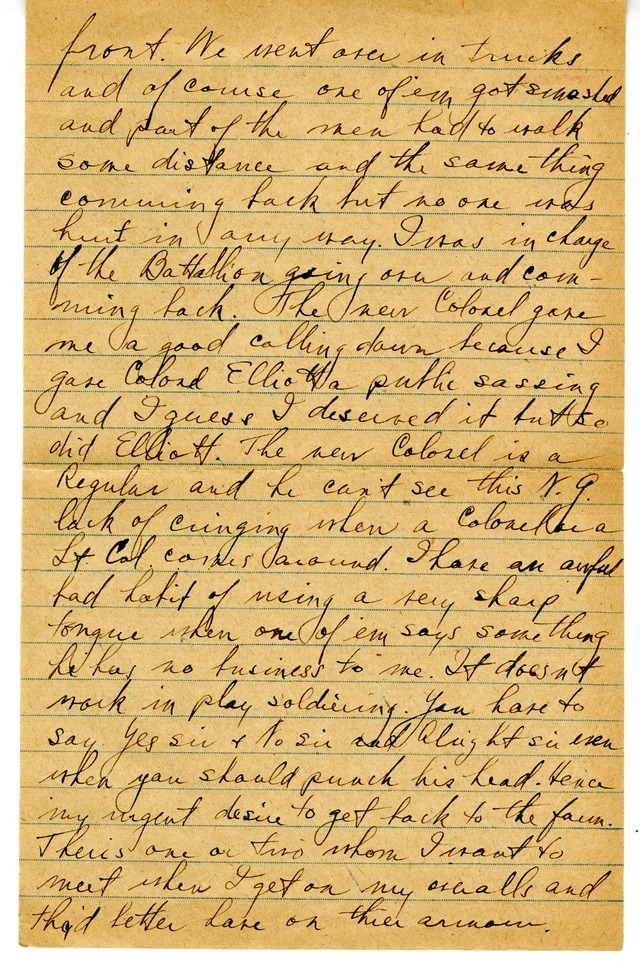 front. We went over in trucks
and of course one of em got smashed
and part of the men had to walk
some distance and the same thing
comming back but no one was
hurt in any way. I was in charge
of the Battallion going over and com-
ming back. The new Colonel gave
me a good calling down because I
gave Colonel Elliott a public sassing
and I guess I deserved it but so
did Elliott. The new Colonel is a
Regular and he can't see this N.G.
lack of cringing when a Colonel or a
Lt Col. comes around. I have an awful
bad habit of using a very sharp
tongue when one of em says something
he has no business to me. It doesn't
work in play soldiering. You have to
say Yes sir & No sir and Alright sir even
when you should punch his head. Hence
my urgent desire to get back to the farm.
Theris one or two whom I want to
meet when I get on my overalls and
they'd better have on thier armour.